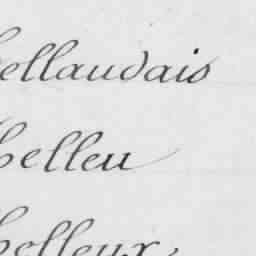 hellaudais
helleu
helleux,